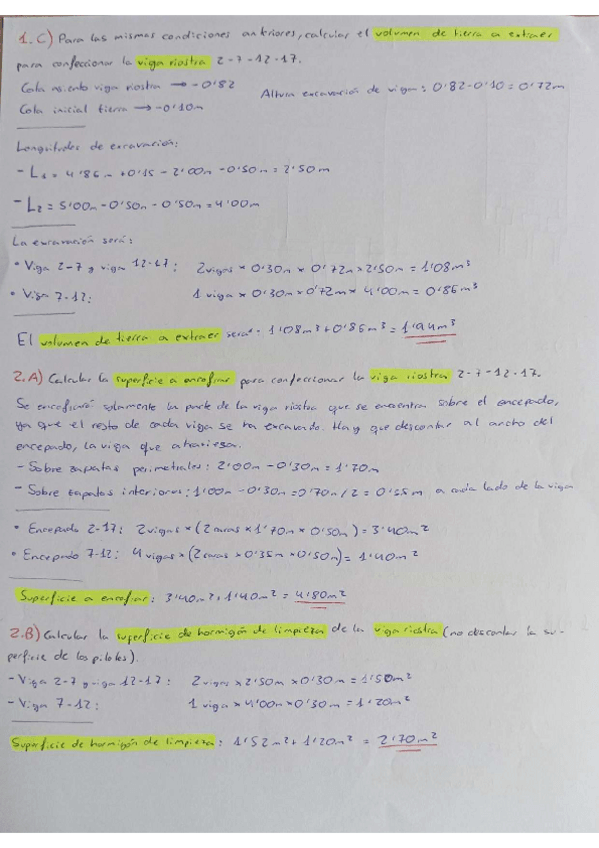 1.C) Para las mismas condiciones anteriores, calcular el volumen de tierra a extraer
para confeccionar la viga riostra 2-7-12-17.
Cota asiento viga riostra → -0'82
Altura excavación de viga: 0'82-0'10 = 0'72m
Cota inicial tierra → -0'10m
Longitudes de excavación:
- L1 = 4'85m + 0'15 - 2'00m - 0'50m = 2'50m
- L2 = 5'00m - 0'50m - 0'50m = 4'00m
La excavación será:
• Viga 2-7 y viga 12-17: 2 vigas × 0'30m × 0'72m × 2'50m = 1'08m³
• Viga 7-12: 1 viga × 0'30m × 0'72m × 4'00m = 0'86m³
El volumen de tierra a extraer será: 1'08m³ + 0'86m³ = 1'94m³
2.A) Calcular la superficie a encofrar para confeccionar la viga riostra 2-7-12-17.
Se encofrará solamente la parte de la viga riostra que se encuentra sobre el encepado,
ya que el resto de cada viga se ha excavado. Hay que descontar al ancho del
encepado, la viga que atraviesa.
- Sobre zapatas perimetrales: 2'00m - 0'30m = 1'70m
- Sobre zapatas interiores: 1'00m - 0'30m = 0'70m / 2 = 0'35m a cada lado de la viga
• Encepado 2-17: 2 vigas × (2 caras × 1'70m × 0'50m) = 3'40m²
• Encepado 7-12: 4 vigas × (2 caras × 0'35m × 0'50m) = 1'40m²
Superficie a encofrar: 3'40m² + 1'40m² = 4'80m²
2.B) Calcular la superficie de hormigón de limpieza de la viga riostra (no descontar la su-
perficie de los pilotes).
- Viga 2-7 y viga 12-17: 2 vigas × 2'50m × 0'30m = 1'50m²
- Viga 7-12: 1 viga × 4'00m × 0'30m = 1'20m²
Superficie de hormigón de limpieza: 1'52m² + 1'20m² = 2'70m²